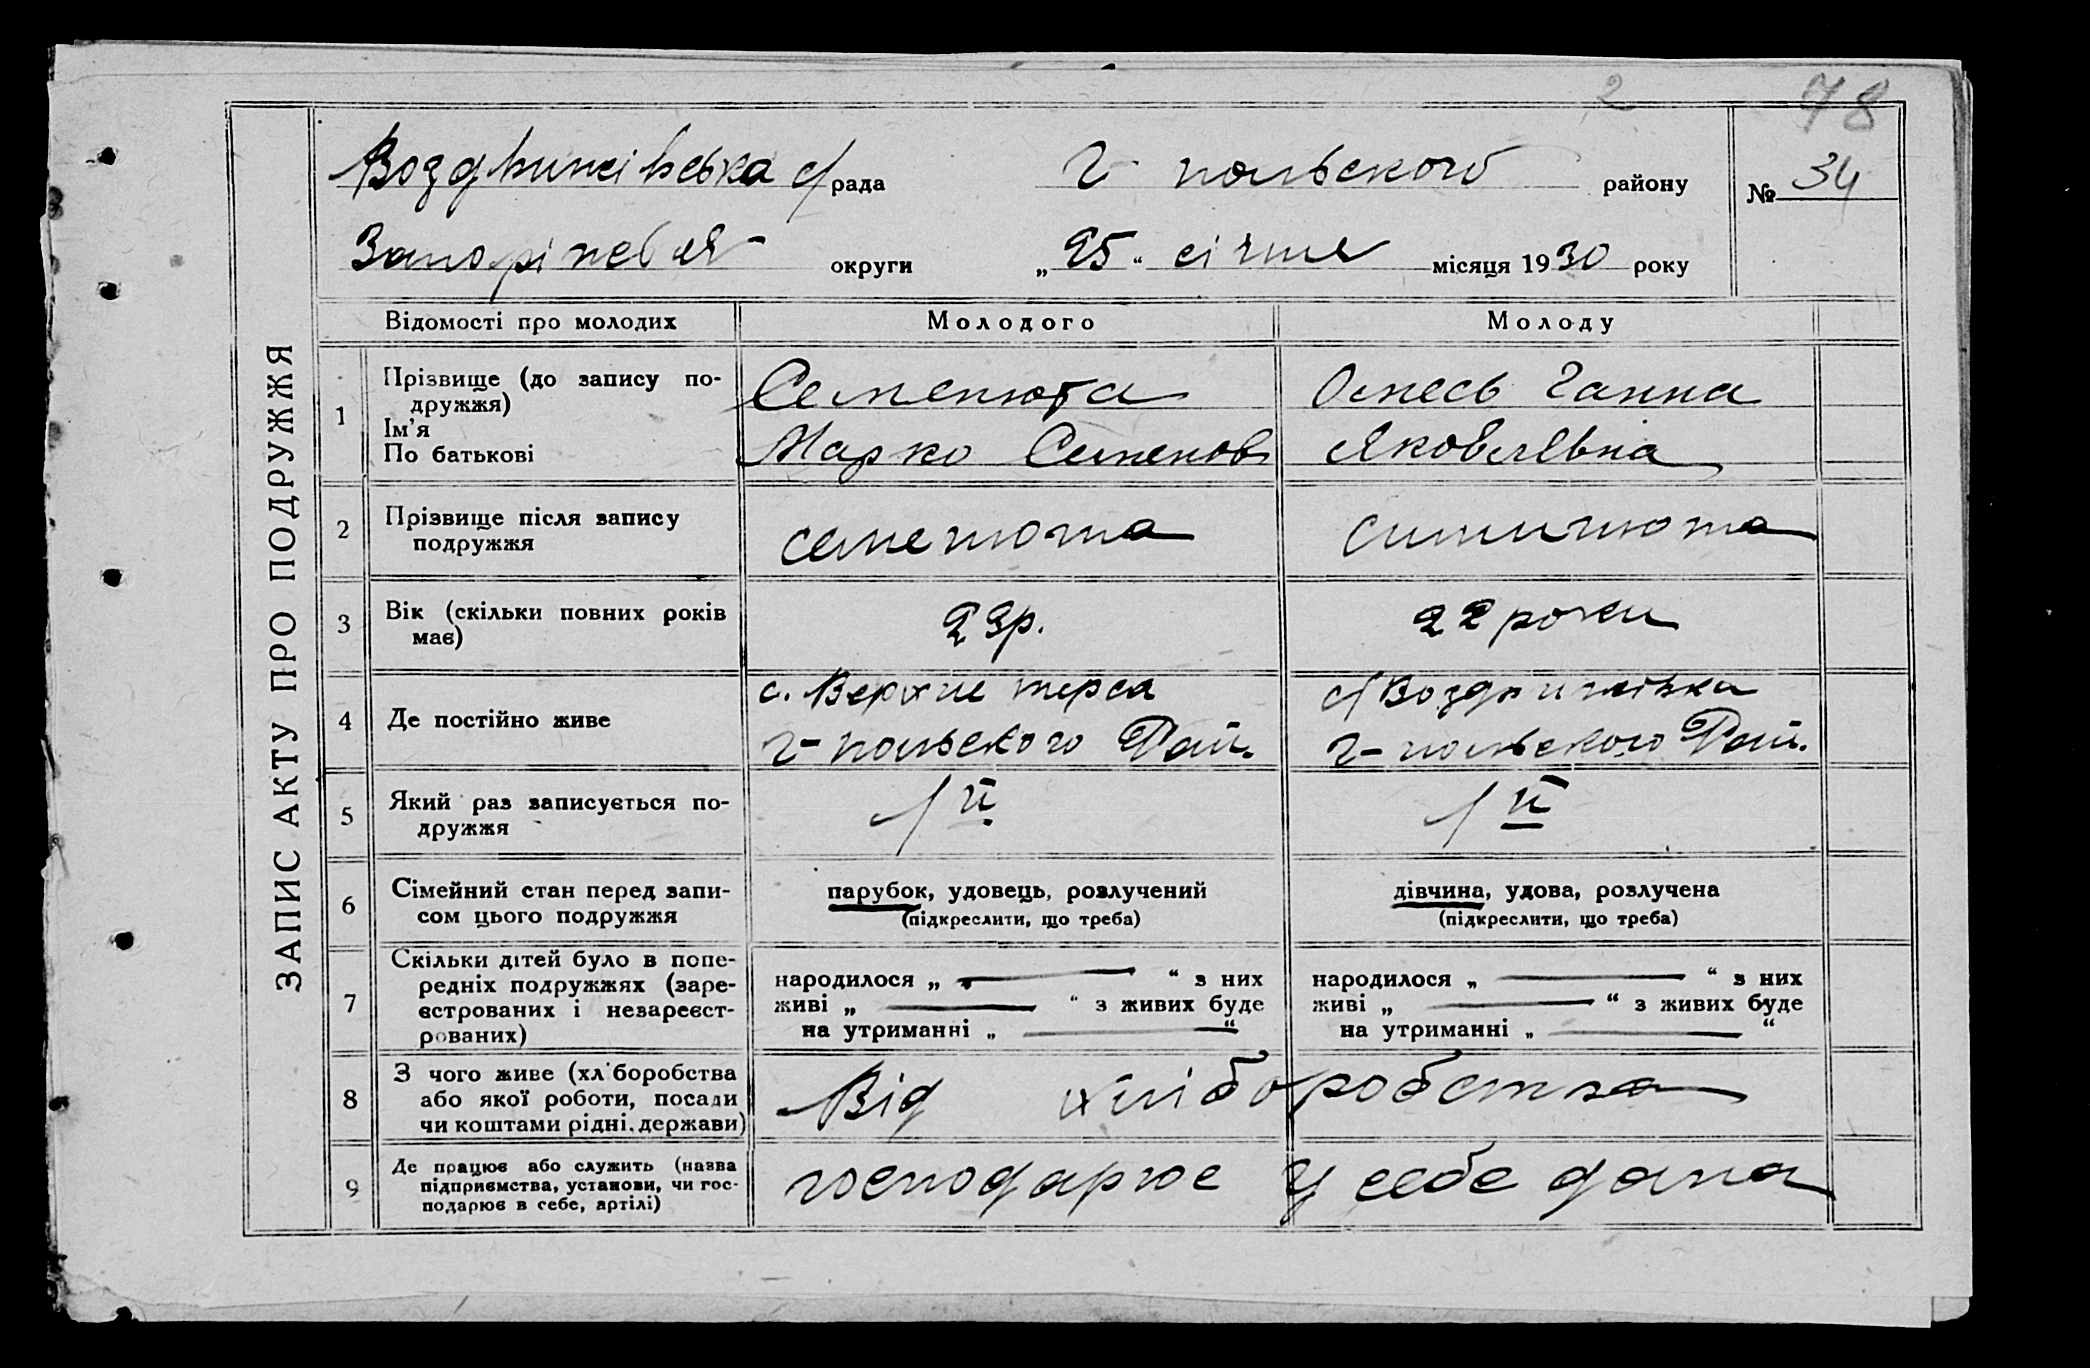 2 78
Воздвижівська с/рада Г польського району № 34
Запоріжжя округи „25“ січня місяця 1930 року
ЗАПИС АКТУ ПРО ПОДРУЖЖЯ
Відомості про молодих Молодого Молоду
1 Прізвище (до запису по-
дружжя)
Ім'я
По батькові
Семенюта
Марко Семенов
Омесь Ганна
Яковлівна
2 Прізвище після запису
подружжя
семенюта
симинюта
3 Вік (скільки повних років
має)
23р.
22 роки
4 Де постійно живе
с. Верхне терса
Г-польского Рай.
с/Воздвижівка
Г-польского Рай.
5 Який раз записується по-
дружжя
1й
1й
6 Сімейний стан перед запи-
сом цього подружжя
парубок, удовець, розлучений
(підкреслити, що треба)
дівчина, удова, розлучена
(підкреслити, що треба)
7 Скільки дітей було в попе-
редніх подружжях (заре-
єстрованих і незареєст-
рованих)
народилося „ — “ з них
живі „ — “ з живих буде
на утриманні „ — “
народилося „ — “ з них
живі „ — “ з живих буде
на утриманні „ — “
8 З чого живе (хліборобства
або якої роботи, посади
чи коштами рідні, держави)
Від хліборобства
9 Де працює або служить (назва
підприємства, установи, чи гос-
подарює в себе, артілі)
господарює у себе дома